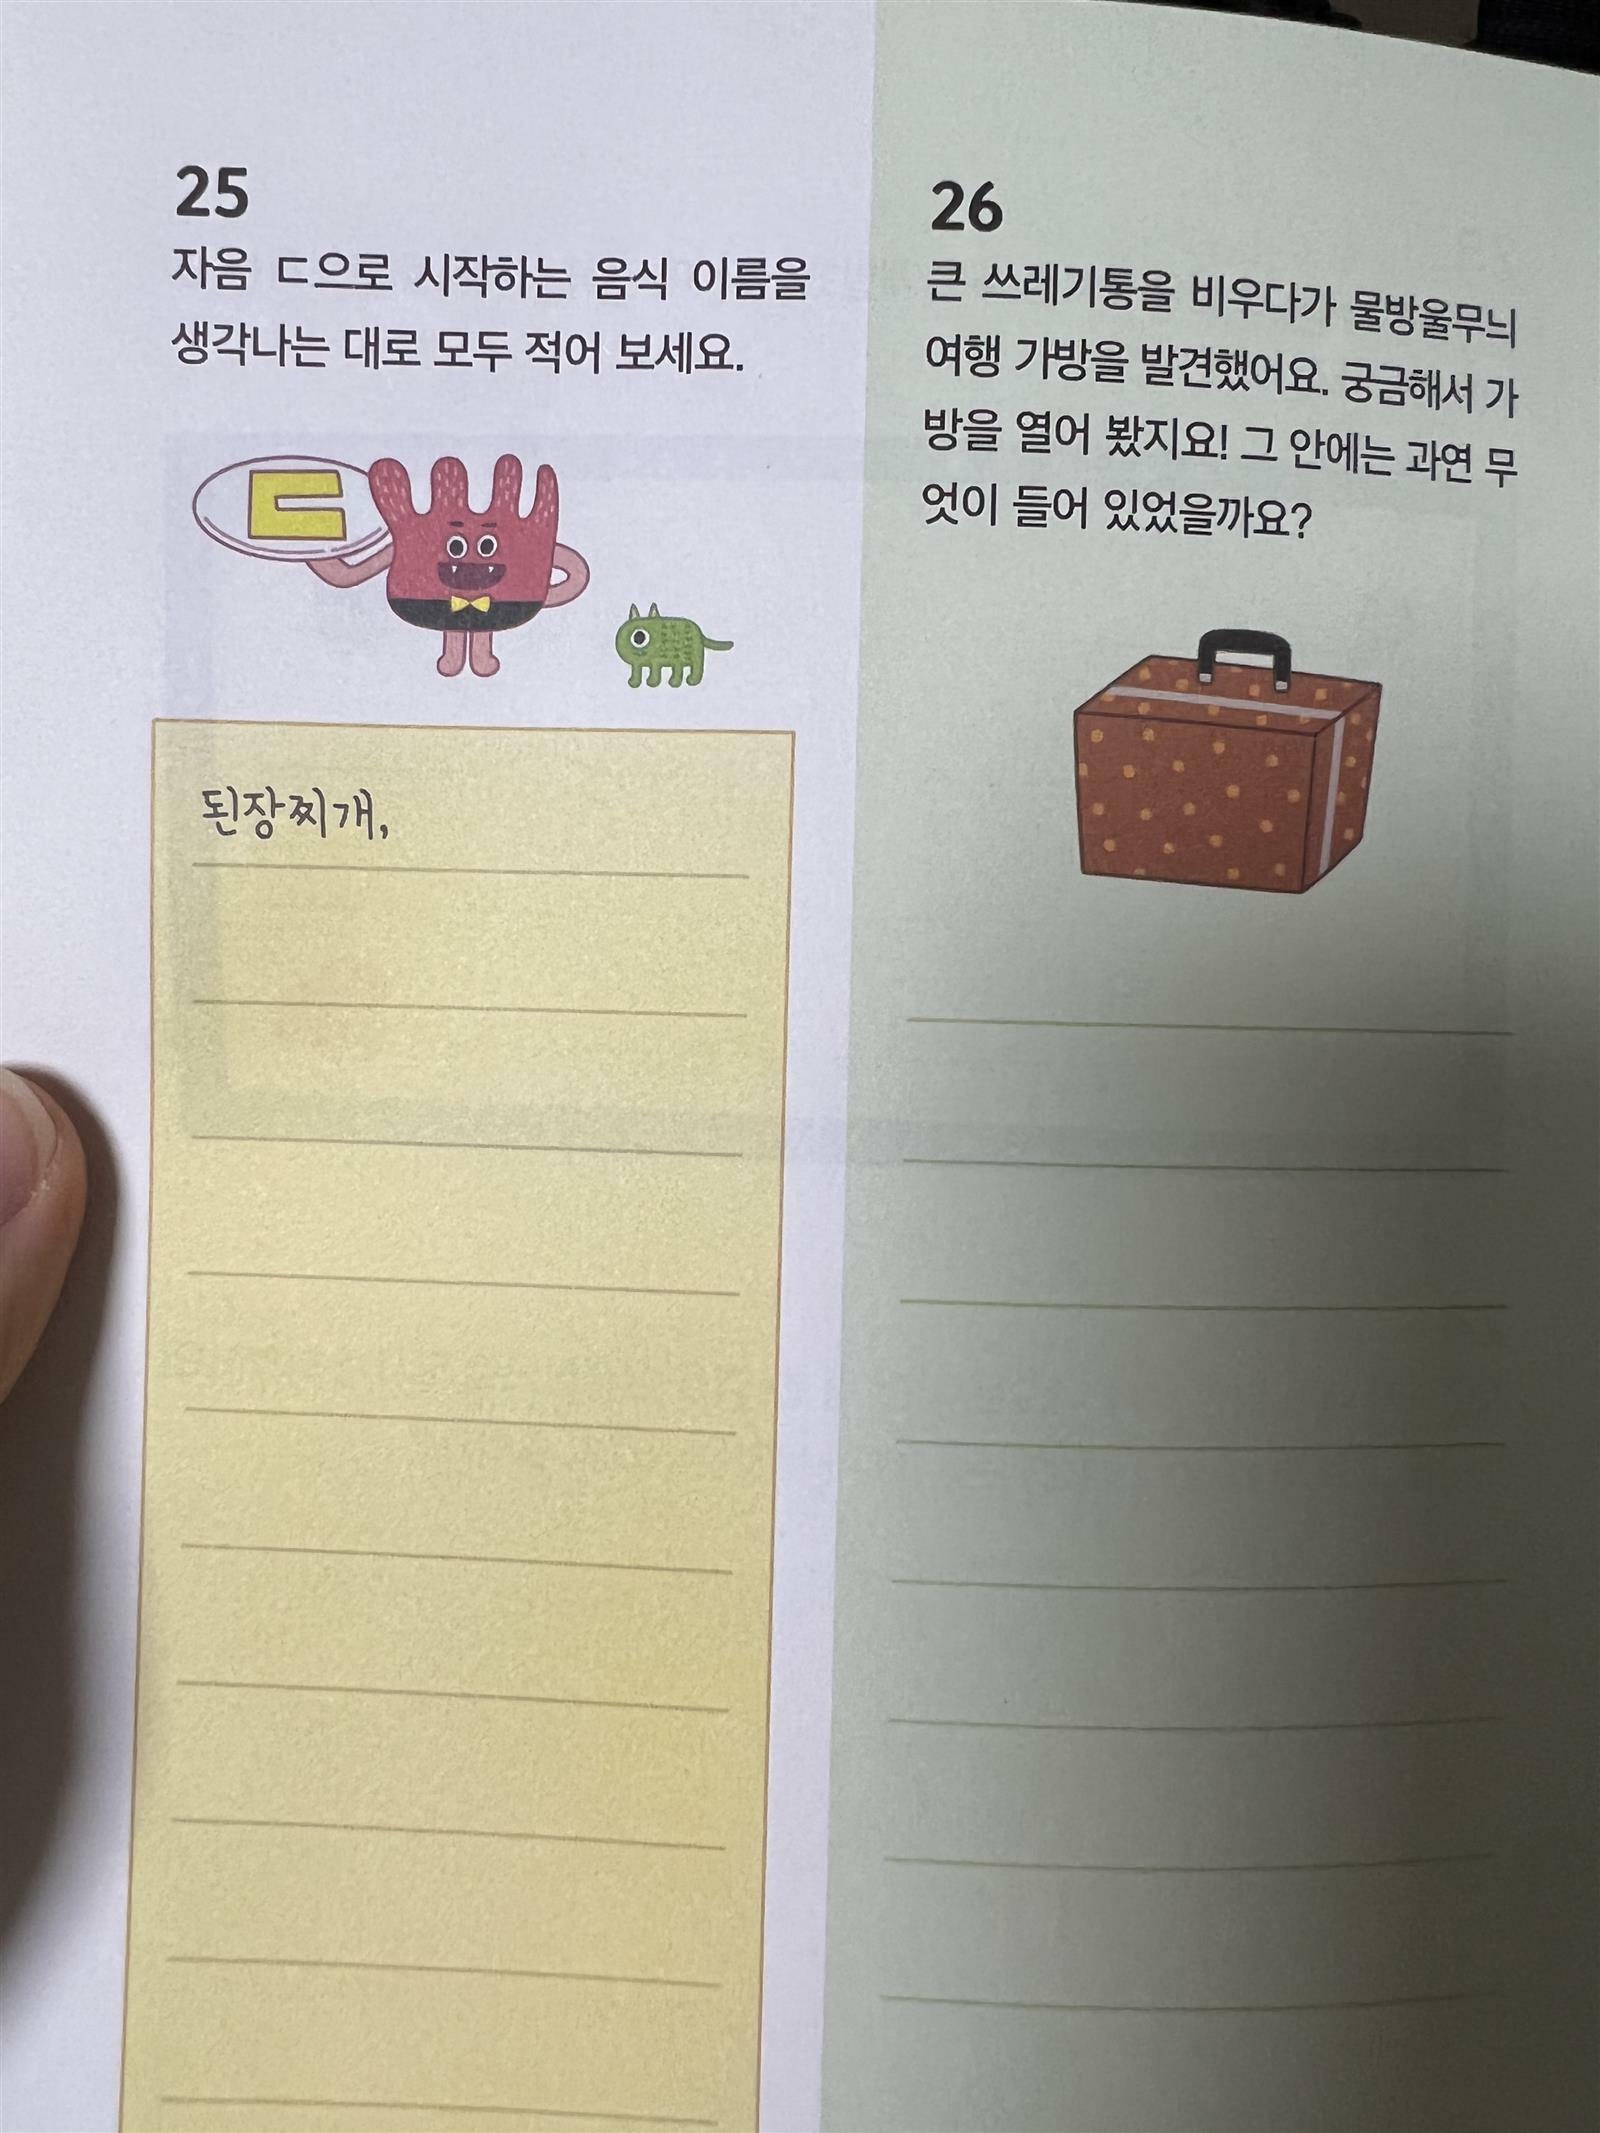 25
자음 ㄷ으로 시작하는 음식 이름을
생각나는 대로 모두 적어 보세요.
ㄷ
된장찌개,
26
큰 쓰레기통을 비우다가 물방울무늬
여행 가방을 발견했어요. 궁금해서 가
방을 열어 봤지요! 그 안에는 과연 무
엇이 들어 있었을까요?